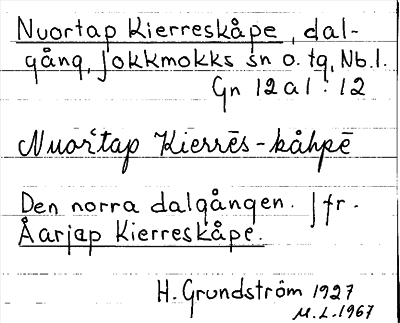 Nuortap Kierreskåpe, dal-
gång, Jokkmokks sn o. tg, Nb.l.
Gn 12 a 1 : 12
Nuorʻtap Kierrēs-kåhpē
Den norra dalgången. Jfr.
Åarjap Kierreskåpe.
H. Grundström 1927
M.L. 1967